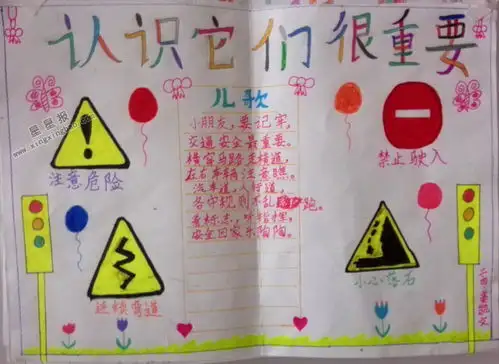 认识它们很重要
星星报
www.xingxingbao.com
儿歌
小朋友，要记牢，
交通安全最重要。
横穿马路走横道，
左右车辆注意瞧。
汽车道，人行道，
各守规则不乱跑。
看标志，听指挥，
安全回家乐陶陶。
注意危险
禁止驶入
连续弯道
小心落石